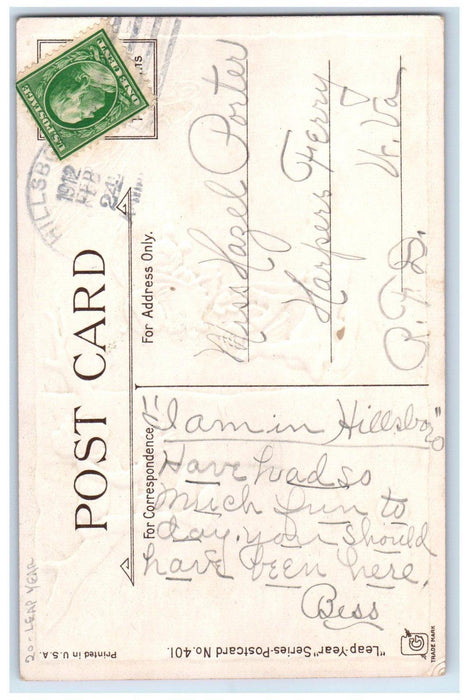 POST CARD
For Address Only.
Miss Hazel Porter
Harpers Ferry
W. Va
R. F. D.
U.S. POSTAGE
ONE CENT
HILLSBO
1912
FEB
24
For Correspondence
"I am in Hillsboro"
Have had so
much fun to
day. you should
have been here.
Bess
20-LEAP YEAR
Printed in U.S.A.
"Leap-Year" Series-Postcard No. 401.
G
TRADE MARK